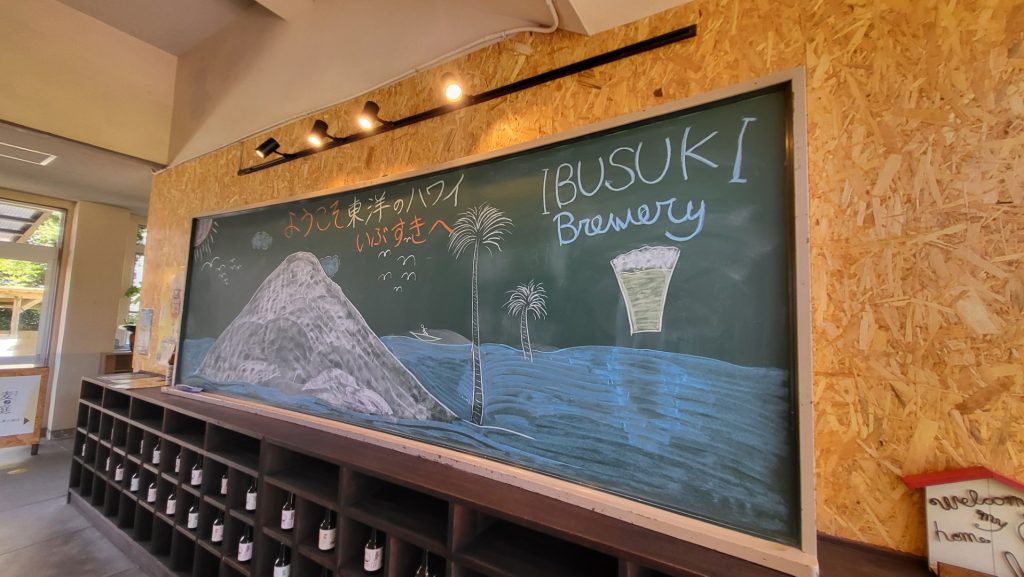 ようこそ東洋のハワイ
いぶすきへ
IBUSUKI
Brewery
welcome
my
home